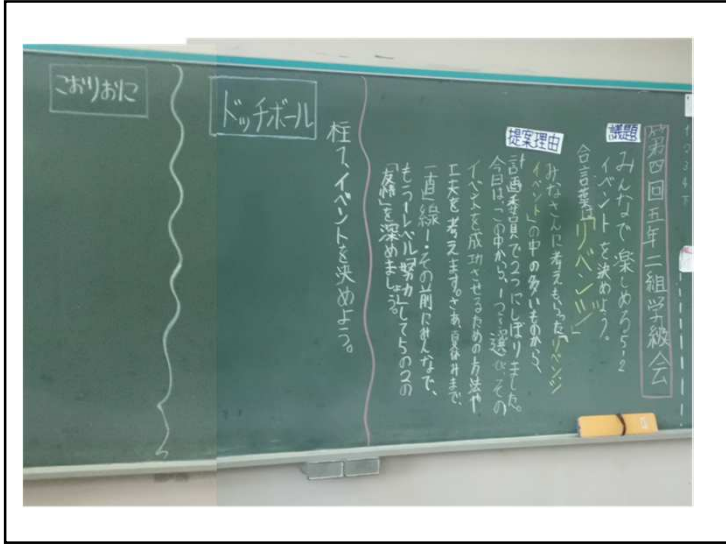 第四回五年二組学級会
議題
みんなで楽しめる5-2
イベントを決めよう。
合言葉「リベンジ」
提案理由
みなさんに考えもらった「リベンジ
イベント」の中の多いものから、
計画委員で2つにしぼりました。
今日は、この中から、1つ選び、その
イベントを成功させるための方法や
工夫を考えます。さあ、夏休みまで、
一直線!その前にみんなで、
もう一レベル「努力」して5の2の
「友情」を深めましょう。
柱1、イベントを決めよう。
ドッチボール
こおりおに